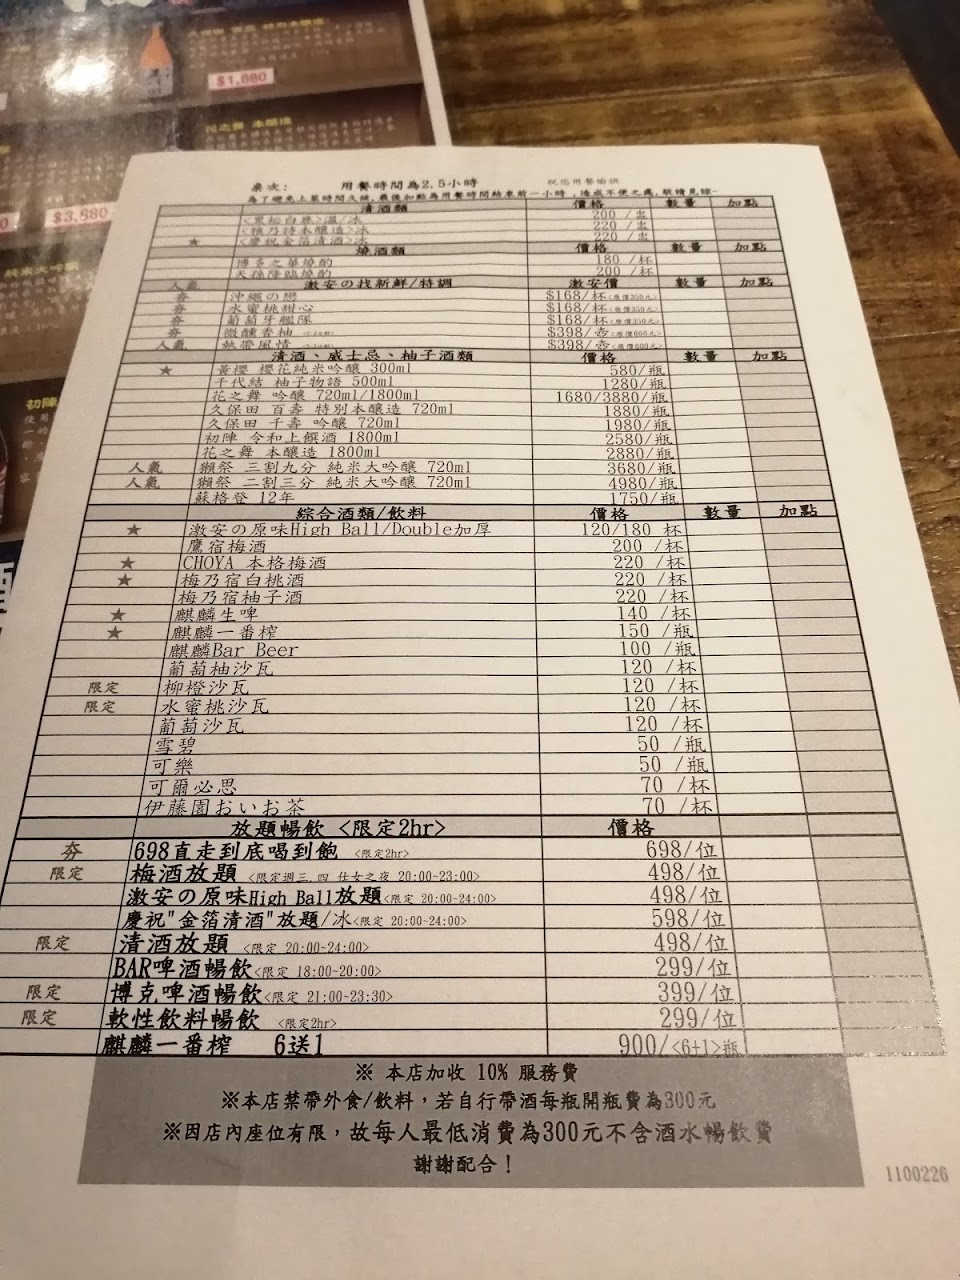 $1,880
花之舞 本釀造
$3,880
初陣
桌次: 用餐時間為2.5小時 祝您用餐愉快
為了避免上菜時間久候,最後加點為用餐時間結束前一小時,造成不便之處,敬請見諒~
清酒類 價格 數量 加點
<黑松白鹿>溫/冰 200 /壺
<雅乃詩本釀造>冰 220 /壺
★ <慶祝金箔清酒>冰 220 /壺
燒酒類 價格 數量 加點
博多之華燒酌 180 /杯
天孫降臨燒酌 200 /杯
人氣 激安の找新鮮/特調 激安價 數量 加點
夯 沖繩の戀 $168/杯<原價350元>
夯 水蜜桃甜心 $168/杯<原價350元>
夯 葡萄牙艦隊 $168/杯<原價350元>
夯 微醺香柚 $398/壺<原價600元>
人氣 熱帶風情 $398/壺<原價600元>
清酒、威士忌、柚子酒類 價格 數量 加點
★ 黃櫻 櫻花純米吟釀 300ml 580/瓶
千代結 柚子物語 500ml 1280/瓶
花之舞 吟釀 720ml/1800ml 1680/3880/瓶
久保田 百壽 特別本釀造 720ml 1880/瓶
久保田 千壽 吟釀 720ml 1980/瓶
初陣 令和上饌酒 1800ml 2580/瓶
花之舞 本釀造 1800ml 2880/瓶
人氣 獺祭 三割九分 純米大吟釀 720ml 3680/瓶
人氣 獺祭 二割三分 純米大吟釀 720ml 4980/瓶
蘇格登 12年 1750/瓶
綜合酒類/飲料 價格 數量 加點
★ 激安の原味High Ball/Double加厚 120/180 杯
鷹宿梅酒 200 /杯
★ CHOYA 本格梅酒 220 /杯
★ 梅乃宿白桃酒 220 /杯
梅乃宿柚子酒 220 /杯
★ 麒麟生啤 140 /杯
★ 麒麟一番榨 150 /瓶
麒麟Bar Beer 100 /瓶
葡萄柚沙瓦 120 /杯
限定 柳橙沙瓦 120 /杯
限定 水蜜桃沙瓦 120 /杯
葡萄沙瓦 120 /杯
雪碧 50 /瓶
可樂 50 /瓶
可爾必思 70 /杯
伊藤園おいお茶 70 /杯
放題暢飲 <限定2hr> 價格
夯 698直走到底喝到飽 <限定2hr> 698/位
限定 梅酒放題 <限定週三.四 仕女之夜 20:00~23:00> 498/位
激安の原味High Ball放題<限定 20:00~24:00> 498/位
慶祝"金箔清酒"放題/冰<限定 20:00~24:00> 598/位
限定 清酒放題 <限定 20:00~24:00> 498/位
BAR啤酒暢飲<限定 18:00~20:00> 299/位
限定 博克啤酒暢飲<限定 21:00~23:30> 399/位
限定 軟性飲料暢飲 <限定2hr> 299/位
麒麟一番榨 6送1 900/<6+1>瓶
※ 本店加收 10% 服務費
※本店禁帶外食/飲料,若自行帶酒每瓶開瓶費為300元
※因店內座位有限,故每人最低消費為300元不含酒水暢飲費
謝謝配合!
1100226